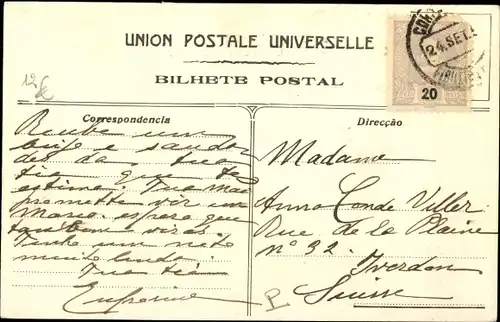 UNION POSTALE UNIVERSELLE
BILHETE POSTAL
24 SET.
20
12
Correspondencia
Recebe um
beijo e saudo
des da tua
tia que te
estima. Tua Mae
promette vir em
Março. espero que
tambem virás.
Tenho um neto
muito lindo.
Tua tia
Direcção
Madame
Anna Conde Viller
Rue de la Plaine
nº 32.
Yverdon
Suisse